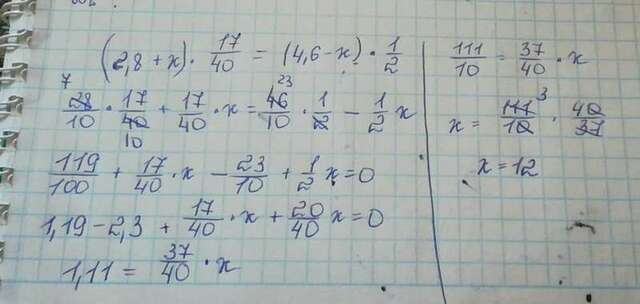 (2,8 + x) · 17/40 = (4,6 - x) · 1/2
7 23
28/10 · 17/40 + 17/40 · x = 46/10 · 1/2 - 1/2 x
10
119/100 + 17/40 · x - 23/10 + 1/2 x = 0
1,19 - 2,3 + 17/40 · x + 20/40 x = 0
1,11 = 37/40 · x
111/10 = 37/40 · x
x = 111/10 3 · 40/37
x = 12